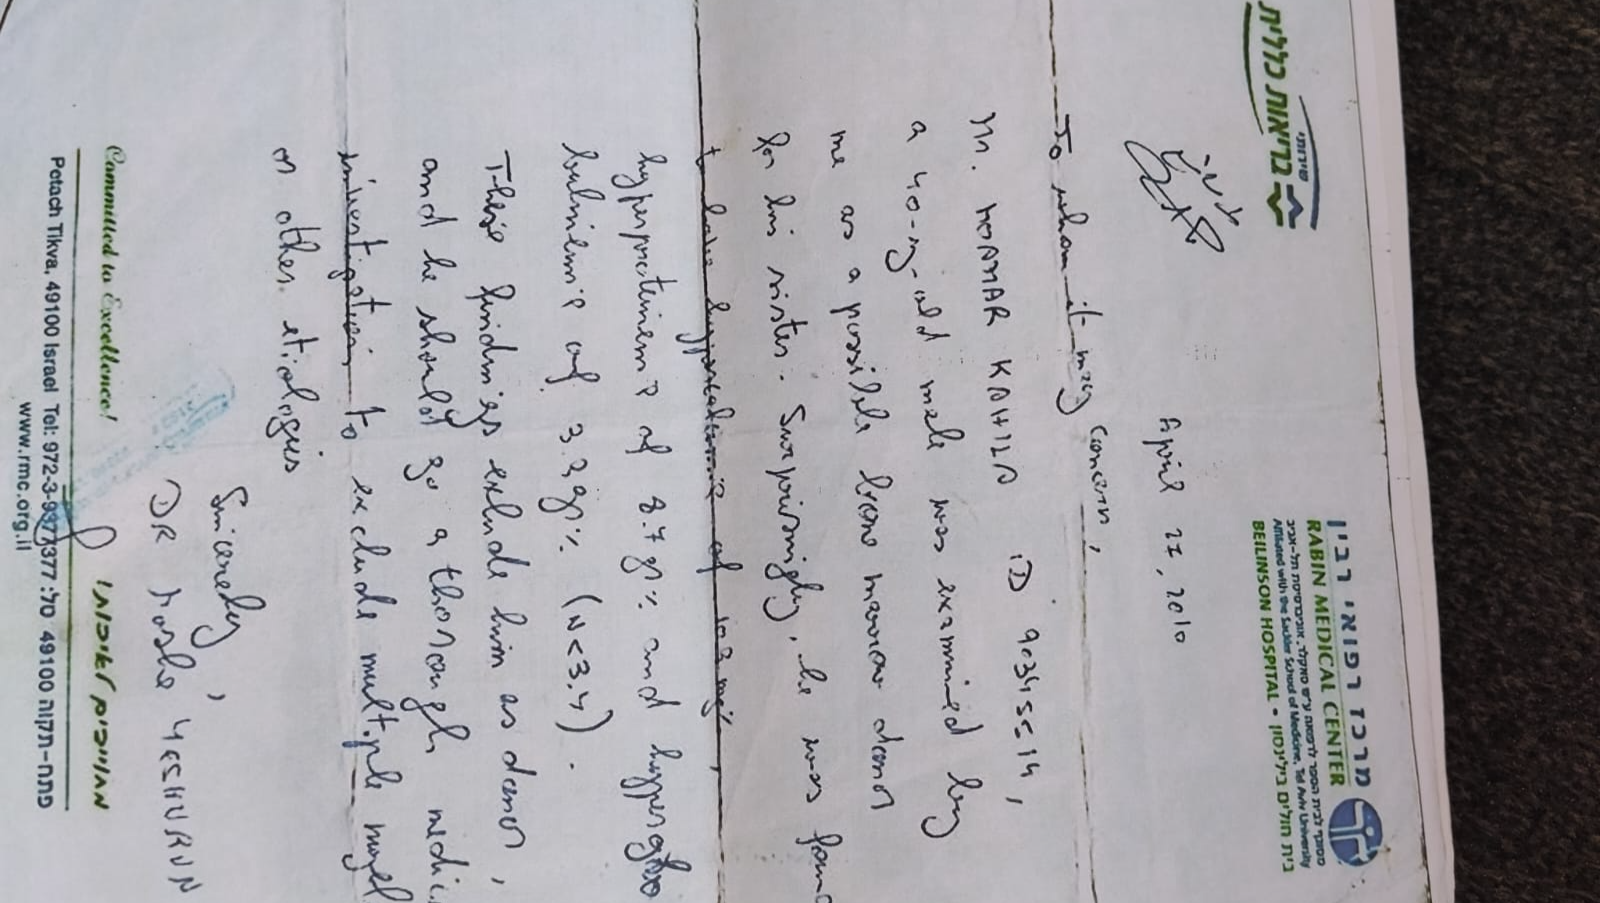 שירותי
בריאות כללית
מרכז רפואי רבין
RABIN MEDICAL CENTER
Affiliated with the Sackler School of Medicine, Tel Aviv University
BEILINSON HOSPITAL • בית חולים בילינסון
April 27, 2010
To whom it may concern,
ID 90345514,
a 40-y-old male was examined by
me as a possible bone marrow donor
for his sister. Surprisingly, he was
hyperproteinemia of 8.7 gr% and hyperglo
bulinemia of 3.2 gr% (N<3.4).
These findings exclude him as donor,
and he should go a thorough
investigation to exclude multiple
or other etiologies
Sincerely,
DR Moshe YESHURUN
Committed to Excellence!
מחויבים לאיכות!
Petach Tikva, 49100 Israel Tel: 972-3-9377377 :טל 49100 פתח-תקוה
www.rmc.org.il